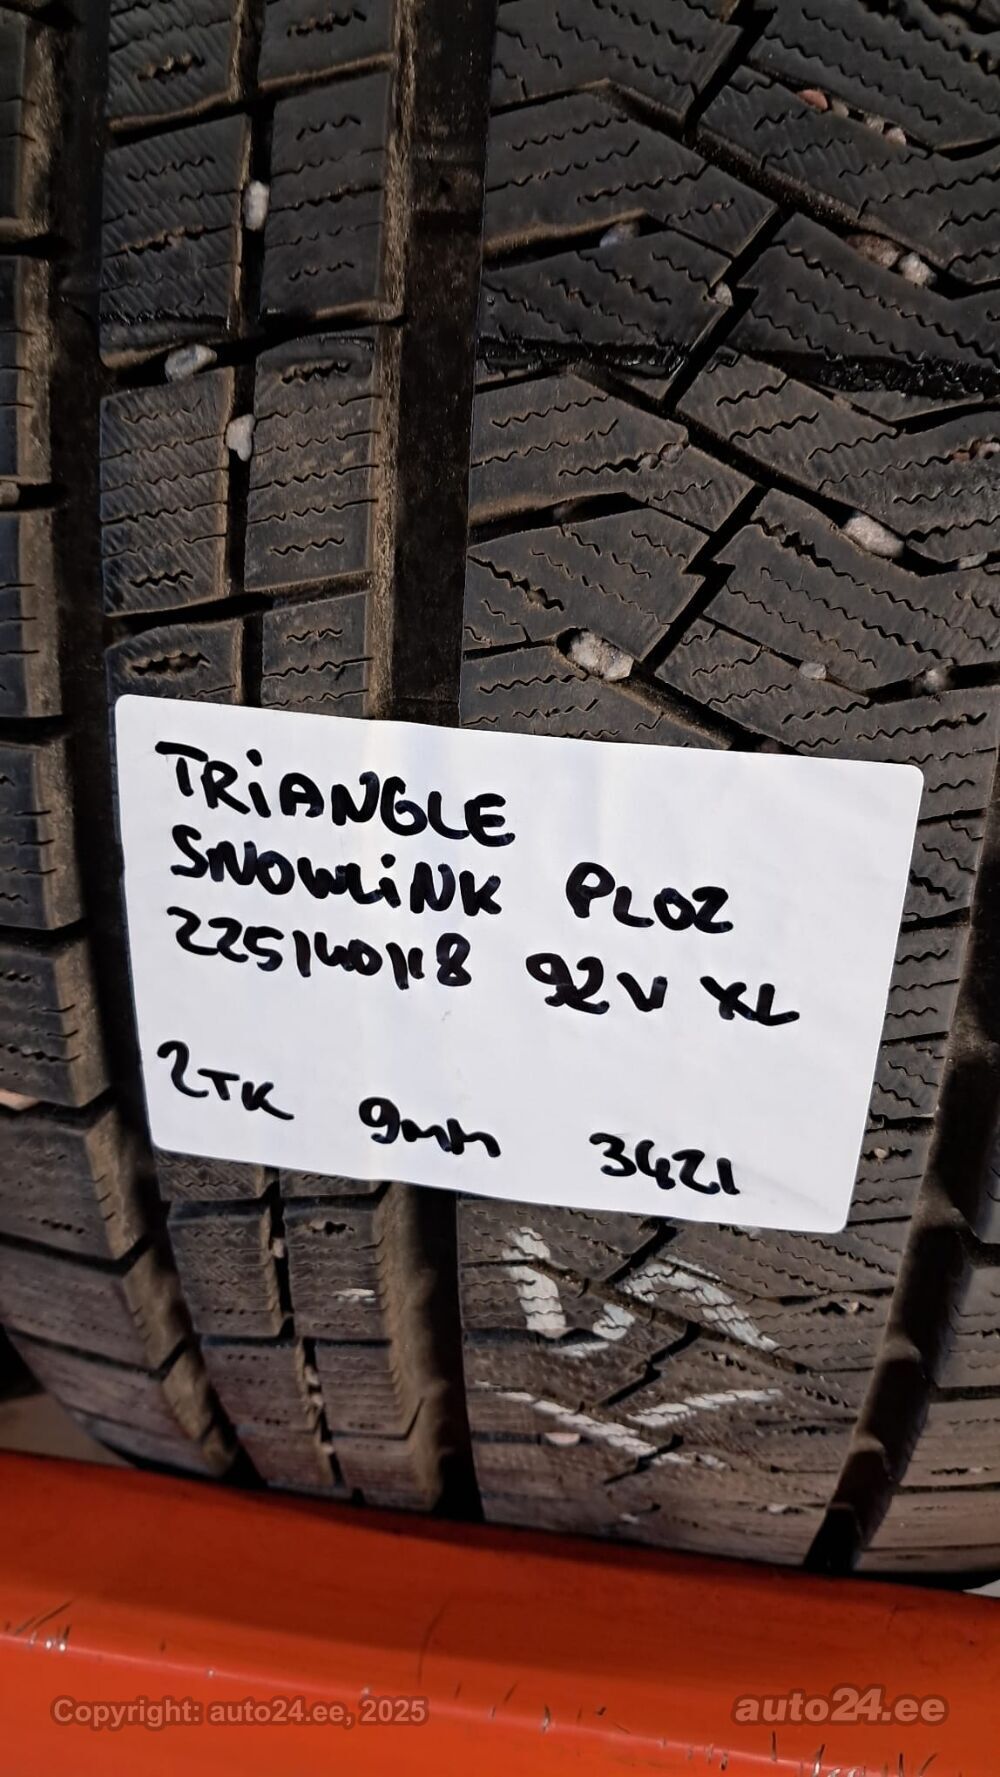 TRiANGLE
SNOWLiNK PL02
225/40/18 92V XL
2TK 9mm 3421
Copyright: auto24.ee, 2025
auto24.ee